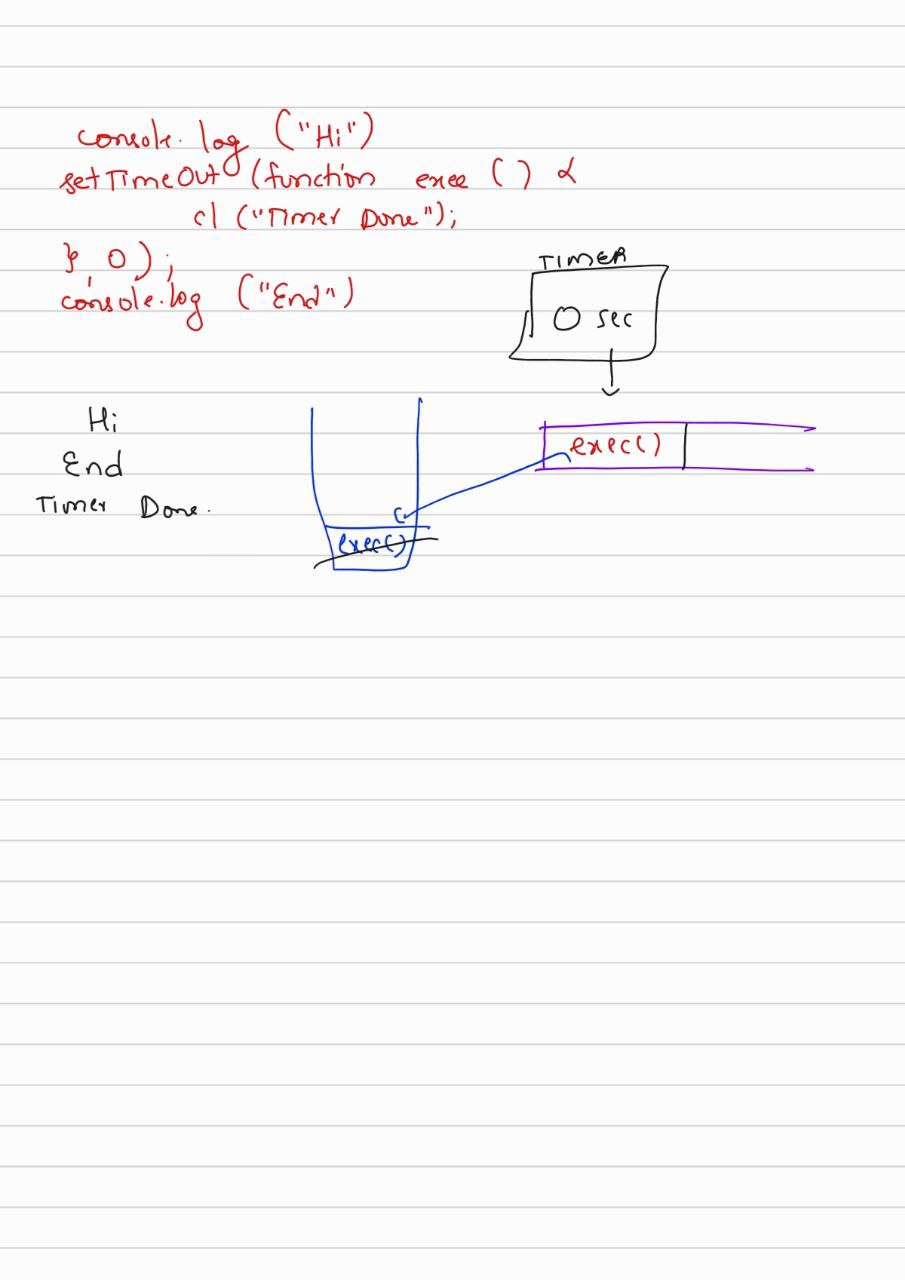 console.log ("Hi")
setTimeOut (function exec () {
cl ("Timer Done");
}, 0);
console.log ("End")
TIMER
0 sec
Hi
End
Timer Done.
exec()
exec()